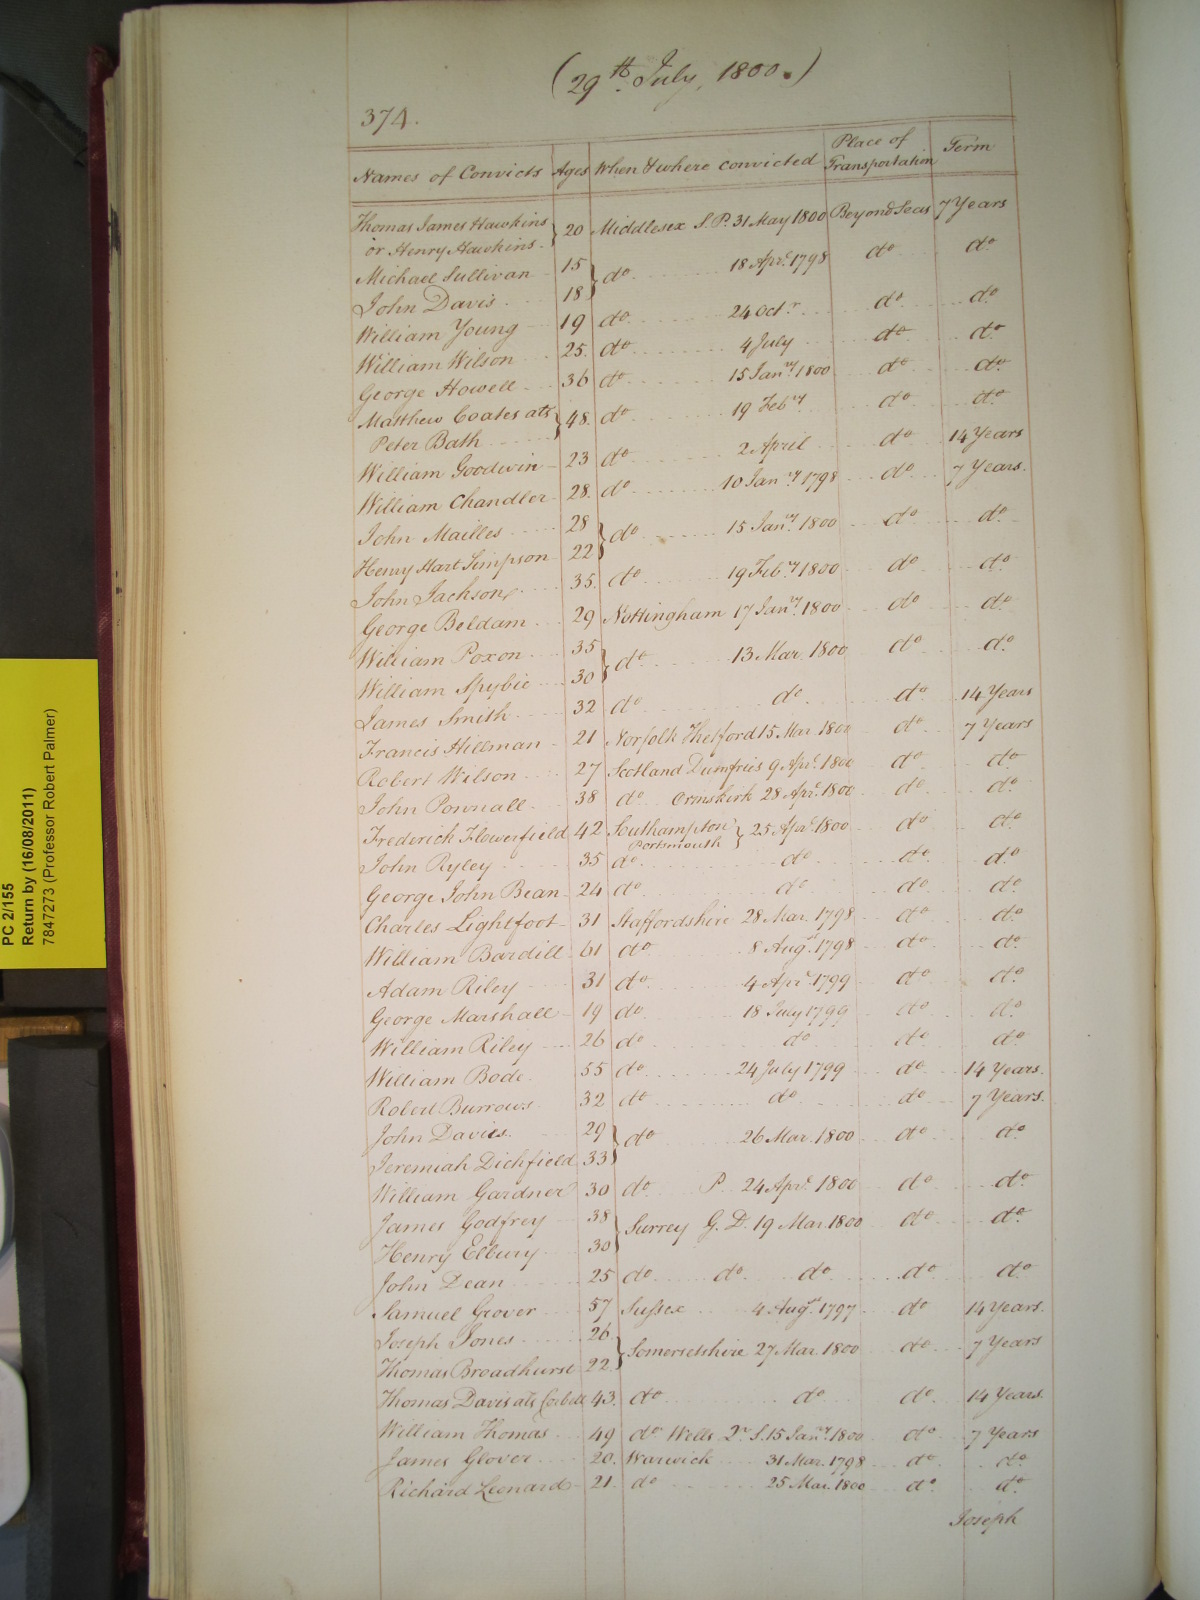 (29th July, 1800.)
374.
Names of Convicts Ages When & where convicted Place of Transportation Term
Thomas James Hawkins
or Henry Hawkins } 20 Middlesex S. P. 31 May 1800 Beyond Seas 7 Years
Michael Sullivan 15 } do 18 Apr. 1798 do do
John Davis 18
William Young 19 do 24 Octr do do
William Wilson 25 do 4 July do do
George Howell 36 do 15 Jany 1800 do do
Matthew Coates als
Peter Bath } 48 do 19 Feby do do
William Goodwin 23 do 2 April do 14 Years
William Chandler 28 do 10 Jany 1798 do 7 Years.
John Mailles 28 } do 15 Jany 1800 do do
Henry Hart Simpson 22
John Jackson 35 do 19 Feby 1800 do do
George Beldam 29 Nottingham 17 Jany 1800 do do
William Poxon 35 } do 13 Mar. 1800 do do
William Spybie 30
James Smith 32 do do do 14 Years
Francis Hillman 21 Norfolk Thetford 15 Mar 1800 do 7 Years
Robert Wilson 27 Scotland Dumfries 9 Apr. 1800 do do
John Pownall 38 do Ormskirk 28 Apr. 1800 do do
Frederick Flowerfield 42 Southampton
Portsmouth } 25 Apr. 1800 do do
John Ryley 35 do do do do
George John Bean 24 do do do do
Charles Lightfoot 31 Staffordshire 28 Mar. 1798 do do
William Bardill 61 do 8 Augt 1798 do do
Adam Riley 31 do 4 Apr. 1799 do do
George Marshall 19 do 18 July 1799 do do
William Riley 26 do do do do
William Bode 55 do 24 July 1799 do 14 Years.
Robert Burrows 32 do do do 7 Years.
John Davies 29 } do 26 Mar. 1800 do do
Jeremiah Dichfield 33
William Gardner 30 do P. 24 Apr. 1800 do do
James Godfrey 38 } Surrey G. D. 19 Mar. 1800 do do
Henry Elbury 30
John Dean 25 do do do do do
Samuel Grover 57 Sussex 4 Augt 1797 do 14 Years.
Joseph Jones 26 } Somersetshire 27 Mar. 1800 do 7 Years
Thomas Broadhurst 22
Thomas Davis als Corbett 43 do do do 14 Years.
William Thomas 49 do Wells Qr S. 15 Jany 1800 do 7 Years
James Glover 20 Warwick 31 Mar. 1798 do do
Richard Leonard 21 do 25 Mar. 1800 do do
Joseph
PC 2/155
Return by (16/08/2011)
7847273 (Professor Robert Palmer)